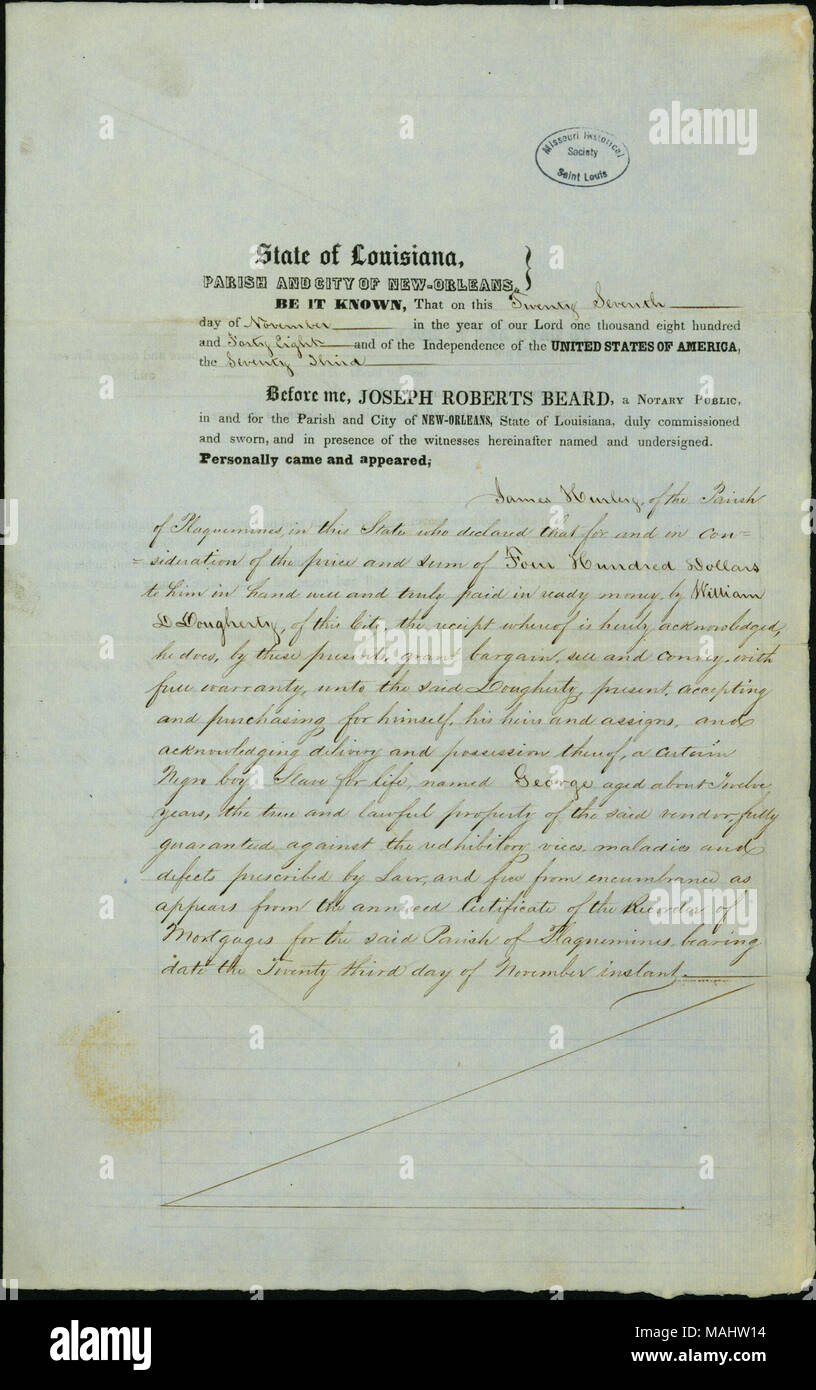 Missouri Historical
Society
Saint Louis
State of Louisiana,
PARISH AND CITY OF NEW-ORLEANS,
BE IT KNOWN, That on this Twenty Seventh
day of November in the year of our Lord one thousand eight hundred
and Forty Eight and of the Independence of the UNITED STATES OF AMERICA,
the Seventy Third
Before me, JOSEPH ROBERTS BEARD, a NOTARY PUBLIC,
in and for the Parish and City of NEW-ORLEANS, State of Louisiana, duly commissioned
and sworn, and in presence of the witnesses hereinafter named and undersigned.
Personally came and appeared,
James Hurley, of the Parish
of Plaquemines, in this State who declared that for and in con=
=sideration of the price and sum of Four Hundred Dollars
to him in hand well and truly paid in ready money, by William
D Dougherty, of this City, the receipt whereof is hereby acknowledged,
he does, by these present, grant bargain, sell and convey, with
full warranty, unto the said Dougherty, present, accepting
and purchasing for himself, his heirs and assigns, and
acknowledging delivery and possession thereof, a certain
Negro boy Slave for life, named George aged about Twelve
years, the true and lawful property of the said vendor, fully
guaranteed against the redhibitory vices, maladies and
defects prescribed by Law, and free from encumbrance as
appears from the annexed Certificate of the Recorder of
Mortgages for the said Parish of Plaquemines, bearing
date the Twenty third day of November instant.
alamy
alamy
alamy
a
a
a
a
a
a
a
a
a
a
alamy
Image ID: MAHW14
www.alamy.com